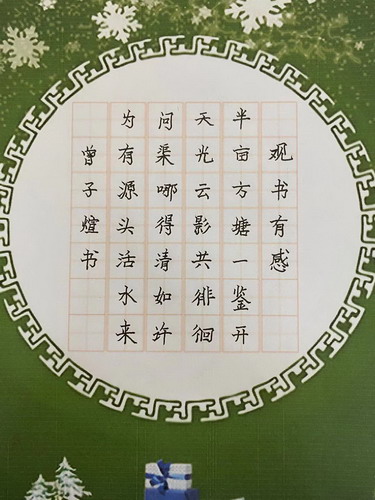 观书有感
半亩方塘一鉴开
天光云影共徘徊
问渠哪得清如许
为有源头活水来
曾子煊书